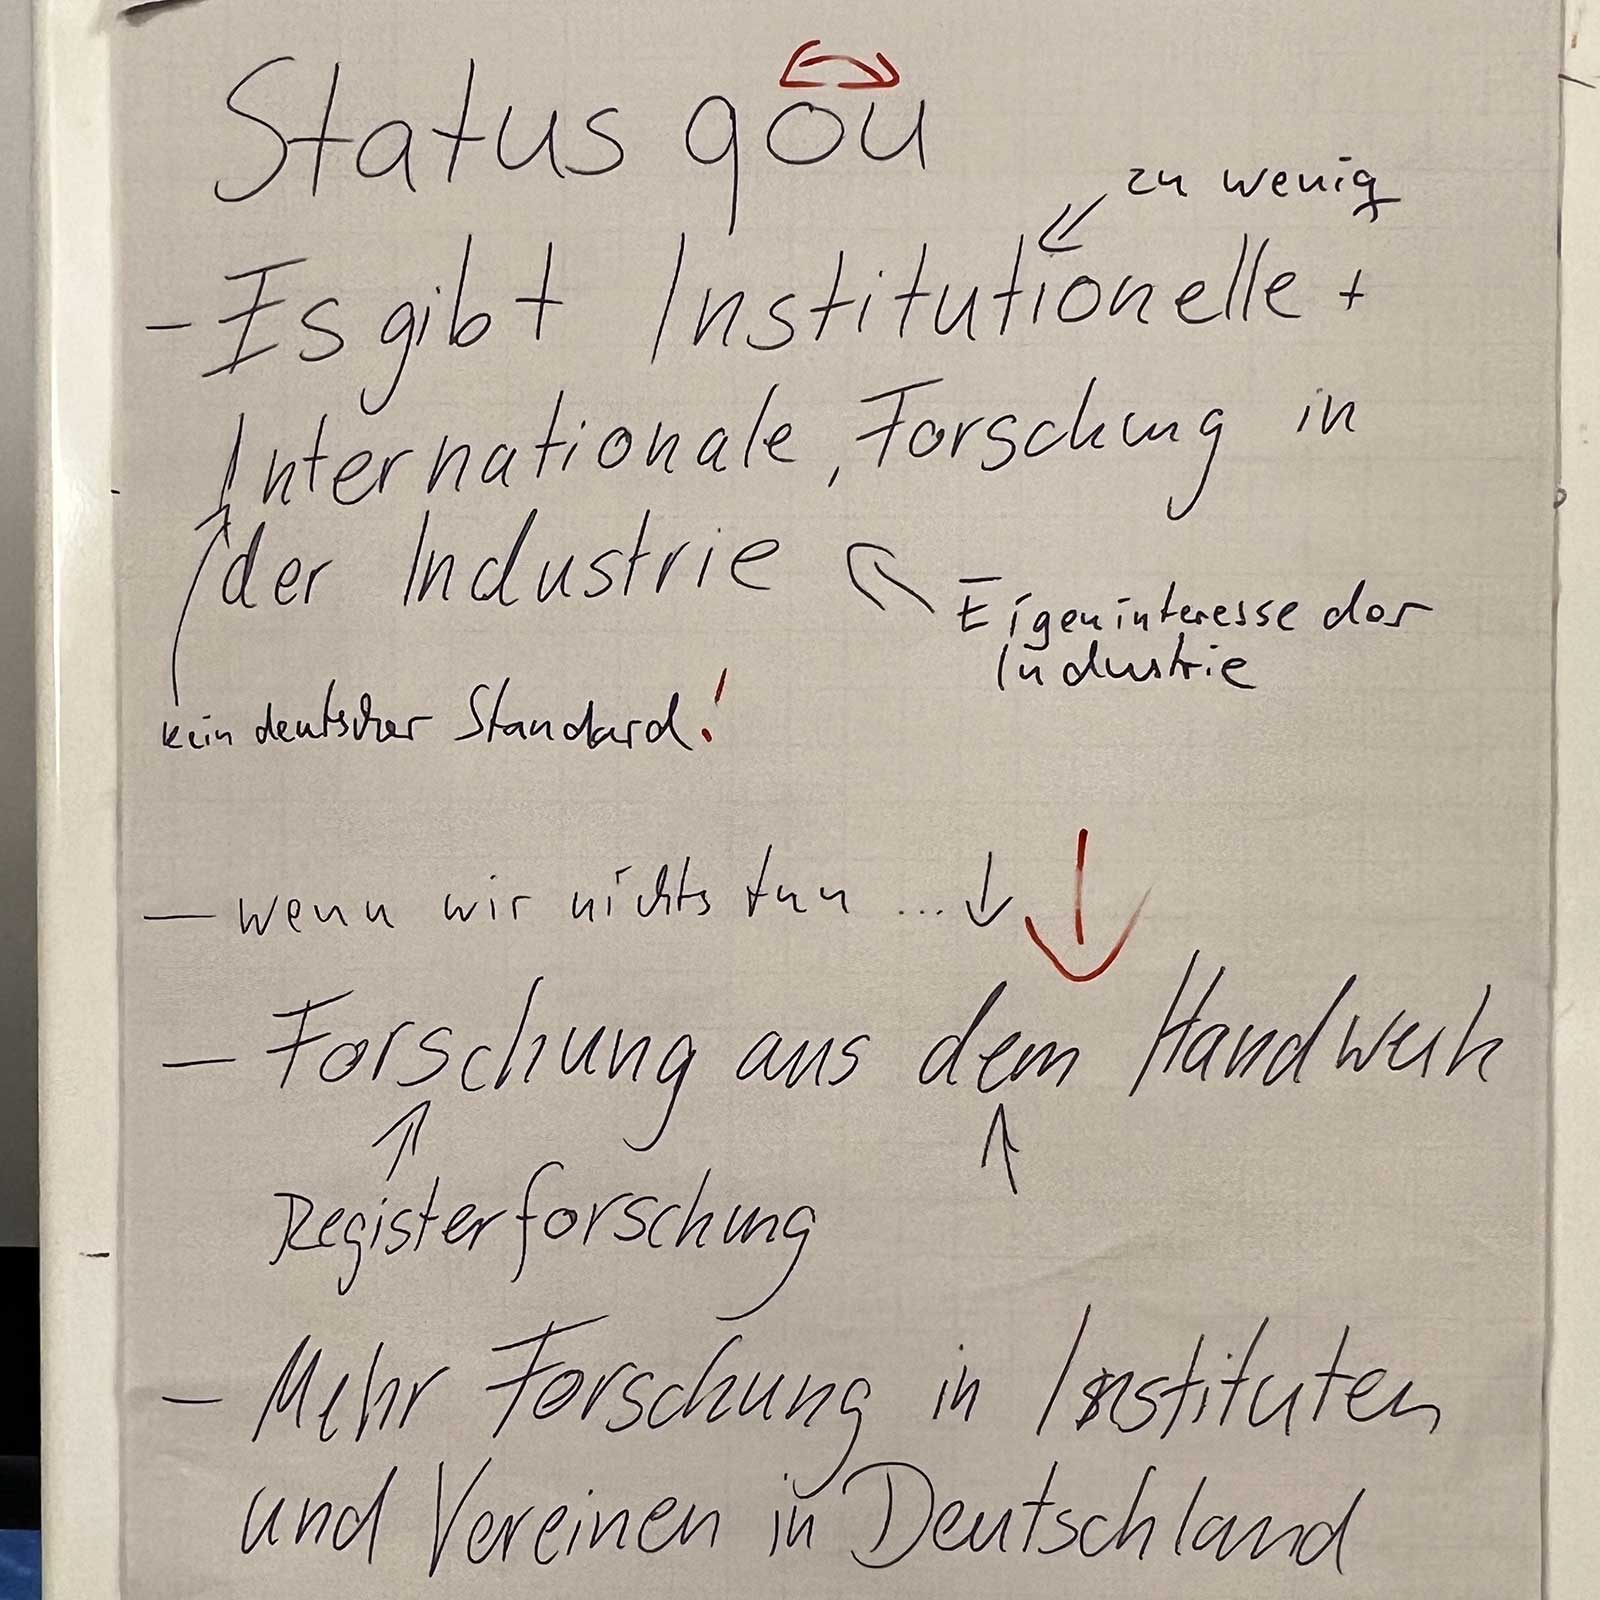 Status qou
zu wenig
- Es gibt Institutionelle +
Internationale, Forschung in
der Industrie
Eigeninteresse der
Industrie
kein deutscher Standard!
- wenn wir nichts tun ...
- Forschung aus dem Handwerk
Registerforschung
- Mehr Forschung in Instituten
und Vereinen in Deutschland